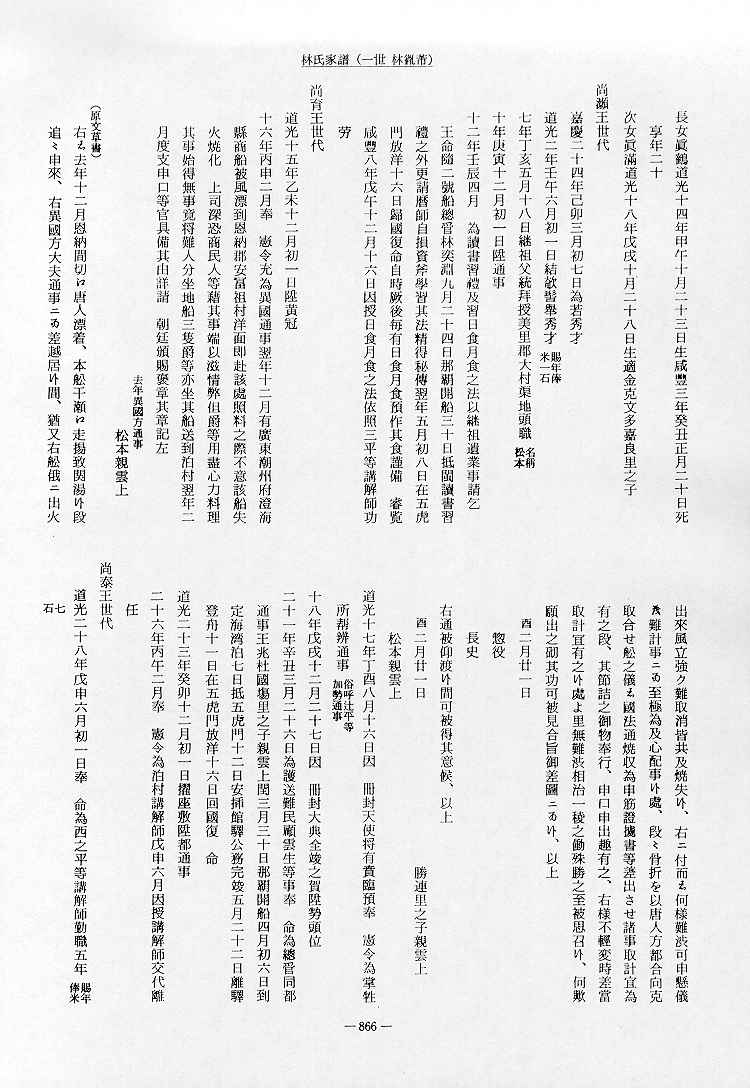 林氏家譜（一世 林胤芾）
長女眞鶴道光十四年甲午十月二十三日生咸豐三年癸丑正月二十日死
享年二十
次女眞滿道光十八年戊戌十月二十八日生適金克文多嘉良里之子
尚灝王世代
嘉慶二十四年己卯三月初七日為若秀才
道光二年壬午六月初一日結欹髻擧秀才 賜年俸米一石
七年丁亥五月十八日継祖父統拜授美里郡大村渠地頭職 名稱松本
十年庚寅十二月初一日陞通事
十二年壬辰四月 為讀書習禮及習日食月食之法以継祖遺業事請乞
王命隨二號船總管林奕淵九月二十四日那覇開船三十日抵閩讀書習
禮之外更請曆師自損資斧學習其法精得秘傳翌年五月初八日在五虎
門放洋十六日歸國復命自時厥後毎有日食月食預作其食謹備 睿覧
咸豐八年戊午十二月十六日因授日食月食之法依照三平等講解師功
勞
尚育王世代
道光十五年乙未十二月初一日陞黃冠
十六年丙申二月奉 憲令充為異國通事翌年十二月有廣東潮州府澄海
縣商船被風漂到恩納郡安冨祖村洋面即赴該處照料之際不意該船失
火焼化 上司深恐商民人等藉其事端以滋情弊但爵等用盡心力料理
其事始得無事竟将難人分坐地船三隻爵等亦坐其船送到泊村翌年二
月度支申口等官具備其由詳請 朝廷頒賜褒章其章記左
去年異國方通事
松本親雲上
（原文草書）
右ゟ去年十二月恩納間切ﾛ唐人漂着、本舩干瀬ﾛ走揚致関湯ﾄ段
追〻申來、右異國方大夫通事ニゐ差越居ﾄ間、猶又右舩俄ニ出火
出來風立強ク難取消皆共及燒失ﾄ、右ニ付而ゟ何様難渋可申懸儀
茂難計事ニゐ至極為及心配事ﾄ處、段〻骨折を以唐人方都合向克
取合せ舩之儀ゟ國法通燒収為申筋證據書等差出させ諸事取計宜為
有之段、其節詰之御物奉行、申口申出趣有之、右様不輕変時差當
取計宜有之ﾄ處ゟ里無難渋相治一稜之働殊勝之至被思召ﾄ、何歟
願出之砌其功可被見合旨御差圖ニゐﾄ、以上
酉二月廿一日
惣役
長史
右通被仰渡ﾄ間可被得其意候、以上
酉二月廿一日 勝連里之子親雲上
松本親雲上
道光十七年丁酉八月十六日因 冊封天使将有賁臨預奉 憲令為掌牲
所幇辨通事 俗呼辻平等加勢通事
十八年戊戌十二月二十七日因 冊封大典全竣之賀陞勢頭位
二十一年辛丑三月二十六日為護送難民顧雲生等事奉 命為總管同都
通事王兆杜國塲里之子親雲上閏三月三十日那覇開船四月初六日到
定海湾泊七日抵五虎門十二日安挿館驛公務完竣五月二十二日離驛
登舟十一日在五虎門放洋十六日回國復 命
道光二十三年癸卯十二月初一日擢座敷陞都通事
二十六年丙午二月奉 憲令為泊村講解師戊申六月因授講解師交代離
任
尚泰王世代
道光二十八年戊申六月初一日奉 命為西之平等講解師勤職五年 賜年俸米
七石
— 866 —